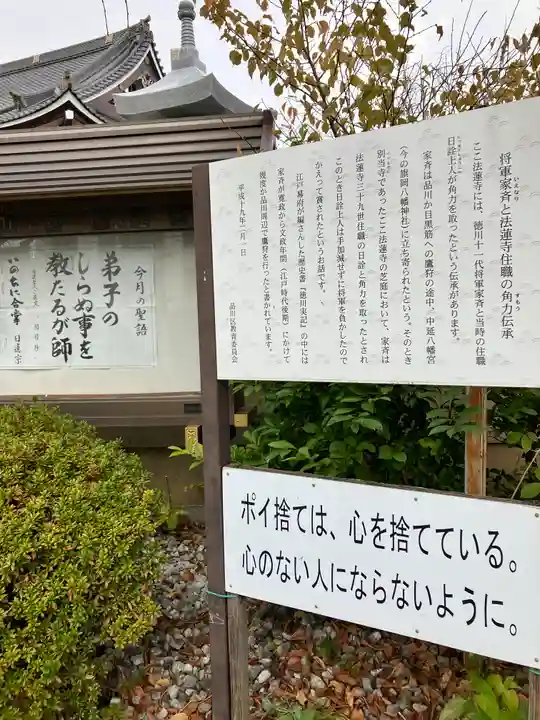 将軍家斉と法蓮寺住職の角力伝承
いえなり
すもう
ここ法蓮寺には、徳川十一代将軍家斉と当時の住職
日詮上人が角力を取ったという伝承があります。
家斉は品川か目黒筋への鷹狩の途中、中延八幡宮
(今の旗岡八幡神社)に立ち寄られたという。そのとき
別当寺であったここ法蓮寺の芝庭において、家斉は
法蓮寺三十九世住職の日詮と角力を取ったとされ
このとき日詮上人は手加減せずに将軍を負かしたので
かえって賞されたというお話です。
江戸幕府が編さんした歴史書『徳川実記』の中には
家斉が寛政から文政年間(江戸時代後期)にかけて
幾度か品川周辺で鷹狩を行ったと書かれています。
平成十九年二月一日
品川区教育委員会
今月の聖語
弟子の
しらぬ事を
教たるが師
日蓮宗
ポイ捨ては、心を捨てている。
心のない人にならないように。